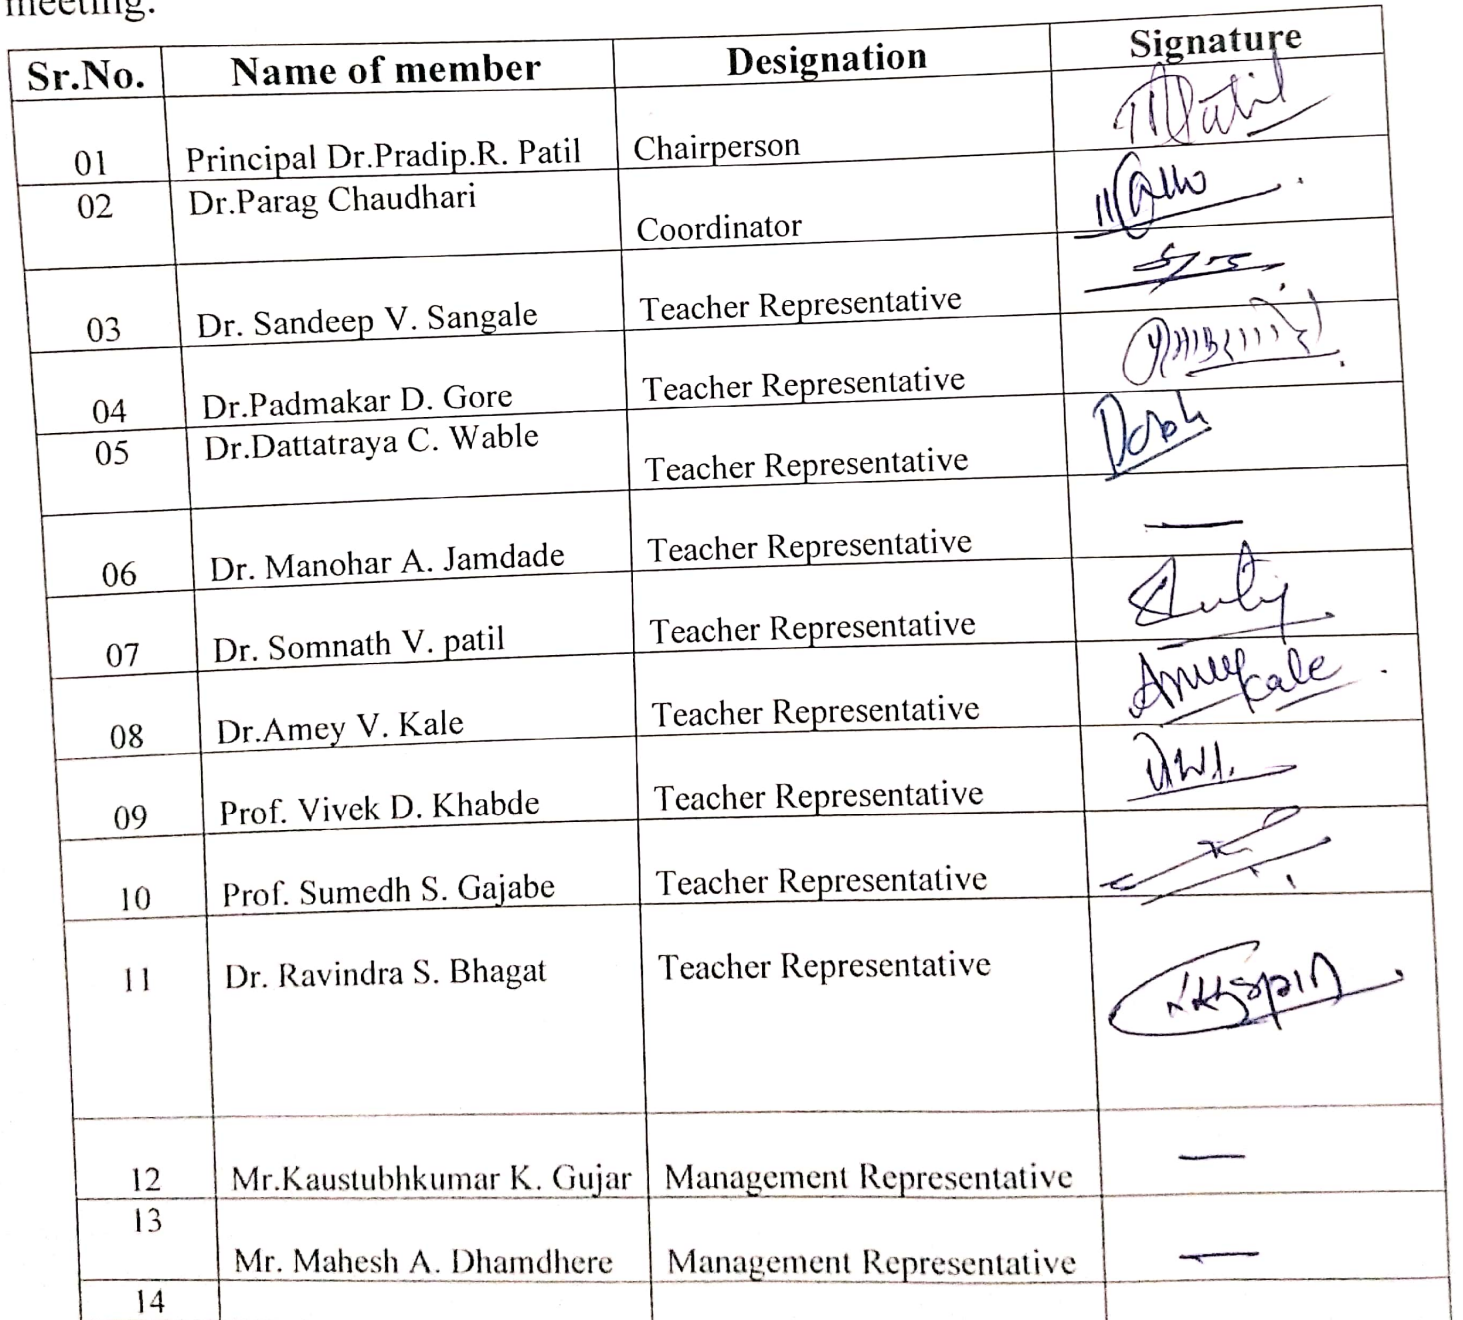 meeting.
Sr.No. Name of member Designation Signature
01 Principal Dr.Pradip.R. Patil Chairperson
02 Dr.Parag Chaudhari Coordinator
03 Dr. Sandeep V. Sangale Teacher Representative
04 Dr.Padmakar D. Gore Teacher Representative
05 Dr.Dattatraya C. Wable Teacher Representative
06 Dr. Manohar A. Jamdade Teacher Representative —
07 Dr. Somnath V. patil Teacher Representative
08 Dr.Amey V. Kale Teacher Representative
09 Prof. Vivek D. Khabde Teacher Representative
10 Prof. Sumedh S. Gajabe Teacher Representative
11 Dr. Ravindra S. Bhagat Teacher Representative
12 Mr.Kaustubhkumar K. Gujar Management Representative —
13 Mr. Mahesh A. Dhamdhere Management Representative —
14